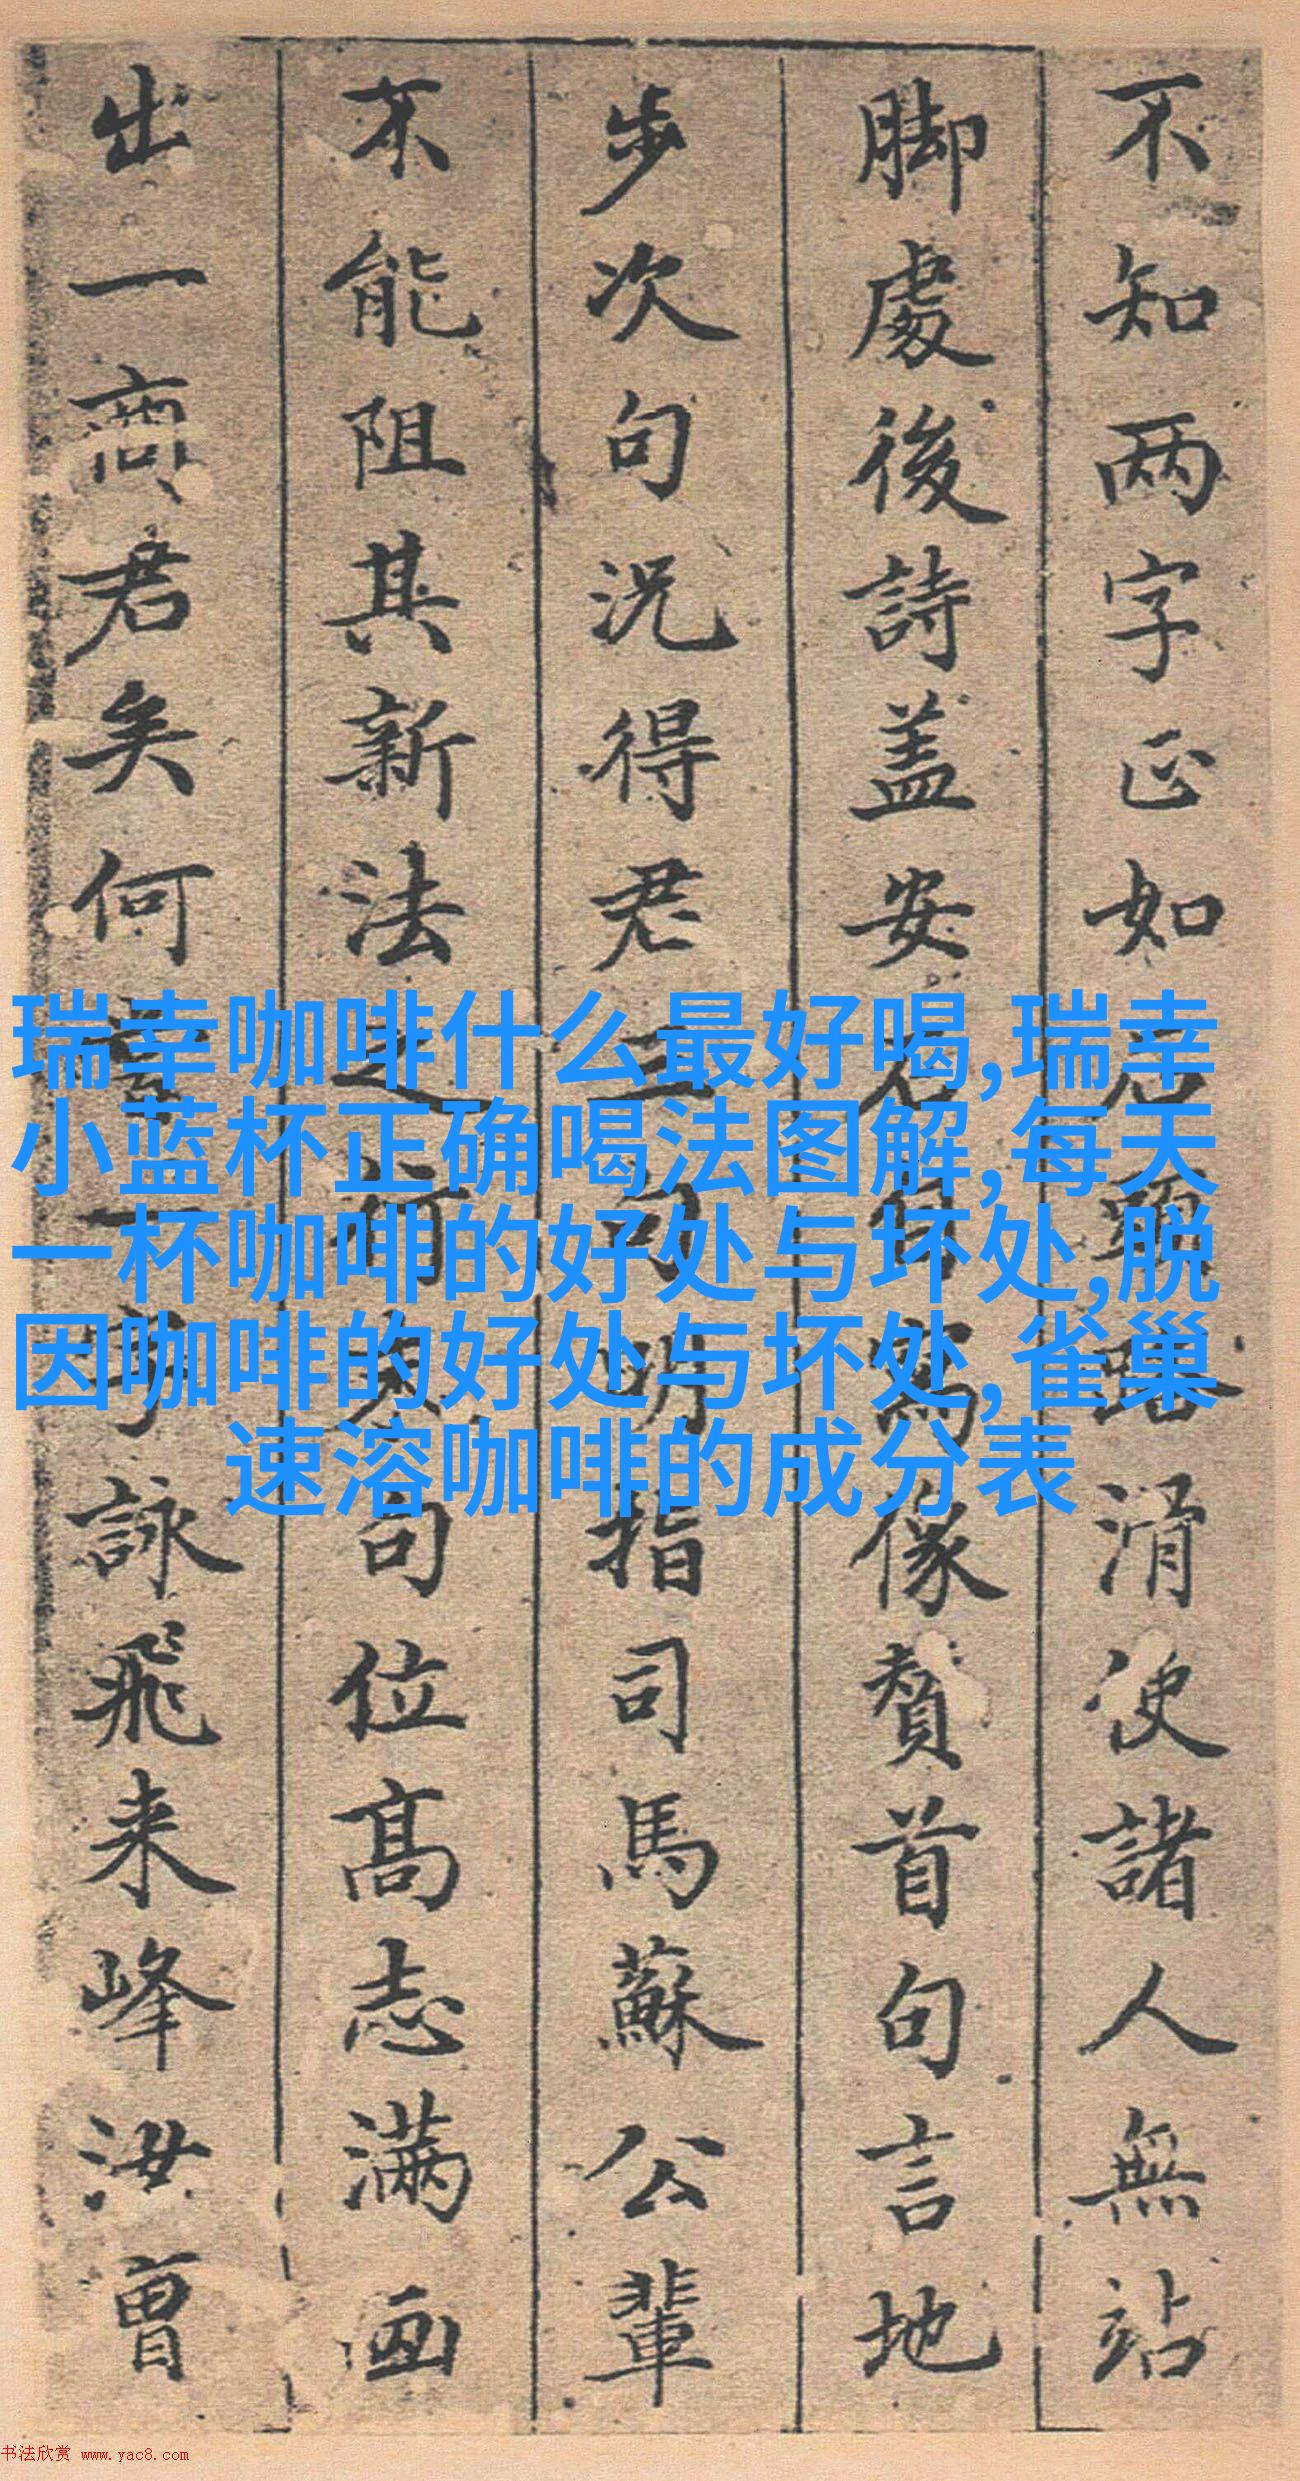 不知两字正如石頭路滑使諸人無站
脚處後詩盖安石自寫像賛首句言地
步次句况得君三句明指司馬蘇公輩
不能阻其新法之行句位高志满画
出一商君矣何詠飛来峰汝曾
瑞幸咖啡什么最好喝,瑞幸
小蓝杯正确喝法图解,每天
一杯咖啡的好处与坏处,脱
因咖啡的好处与坏处,雀巢
速溶咖啡的成分表
书法欣赏 www.yac8.com